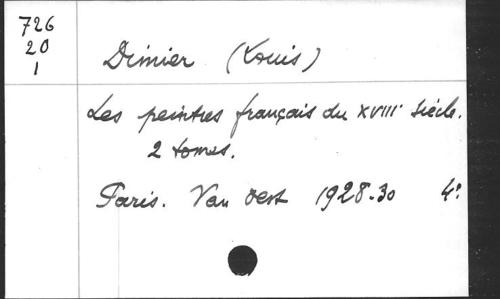 726
20
1
Dimier (Louis)
Les peintres français du XVIII siècle.
2 tomes.
Paris. Van Oest 1928-30 4°